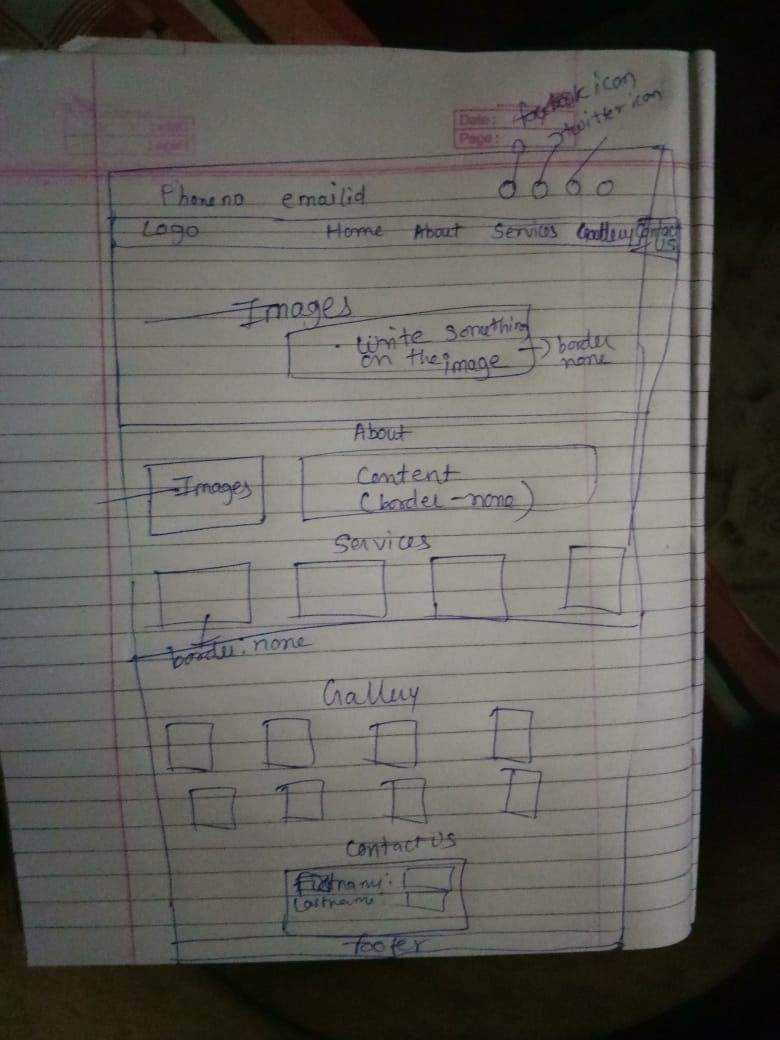 facebook icon
twitter icon
Date:
Page:
Phone no emailid
Logo Home About Services Gallery Contact US
Images
write something
on the image
border
none
About
Images
Content
(border-none)
Services
border:none
Gallery
Contact US
Firstname:
Lastname:
footer